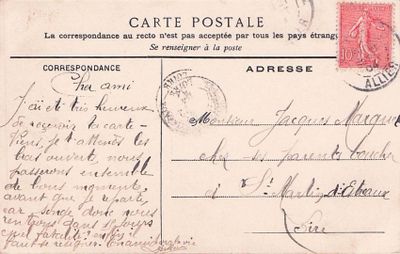 CARTE POSTALE
La correspondance au recto n'est pas acceptée par tous les pays étrang
Se renseigner à la poste
CORRESPONDANCE
ADRESSE
Cher ami
J'ai été très heureux
de recevoir ta carte
Viens, je t'attends les
bras ouvert, nous
passerons ensemble
de bons moments,
avant que je reparte,
car songe donc nous
rentrons dans
faut se résigner.
Monsieur Jacques
chez ses parents
à St Martin d'Estreaux
Loire
10
ALLIER